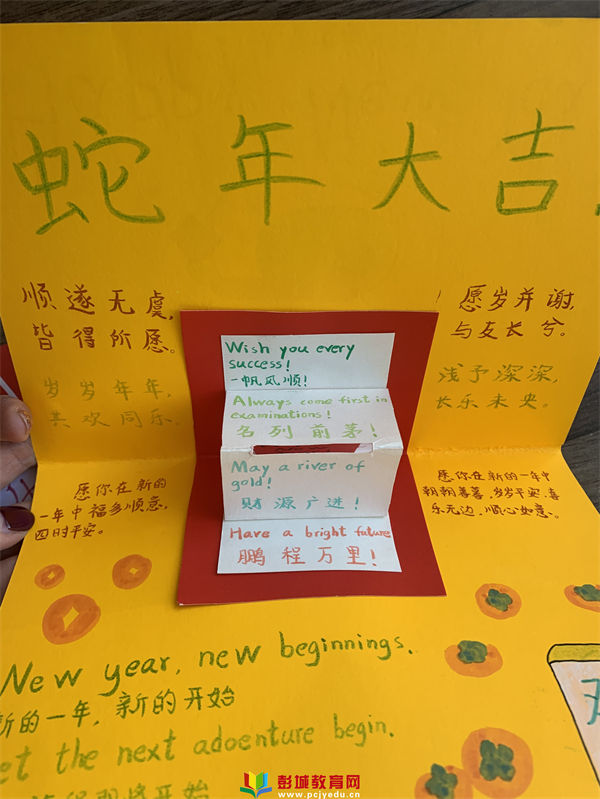 蛇年大吉
顺遂无虞,
皆得所愿。
岁岁年年,
共欢同乐。
愿岁并谢,
与友长兮。
浅予深深,
长乐未央。
Wish you every
success!
一帆风顺!
Always come first in
examinations!
名列前茅!
May a river of
gold!
财源广进!
Have a bright future
鹏程万里!
愿你在新的
一年中福多顺意,
四时平安。
愿你在新的一年中
朝朝暮暮,岁岁平安,喜
乐无边,顺心如意。
New year, new beginnings.
新的一年,新的开始
et the next adoenture begin.
开始
彭城教育网
www.pcjyedu.cn